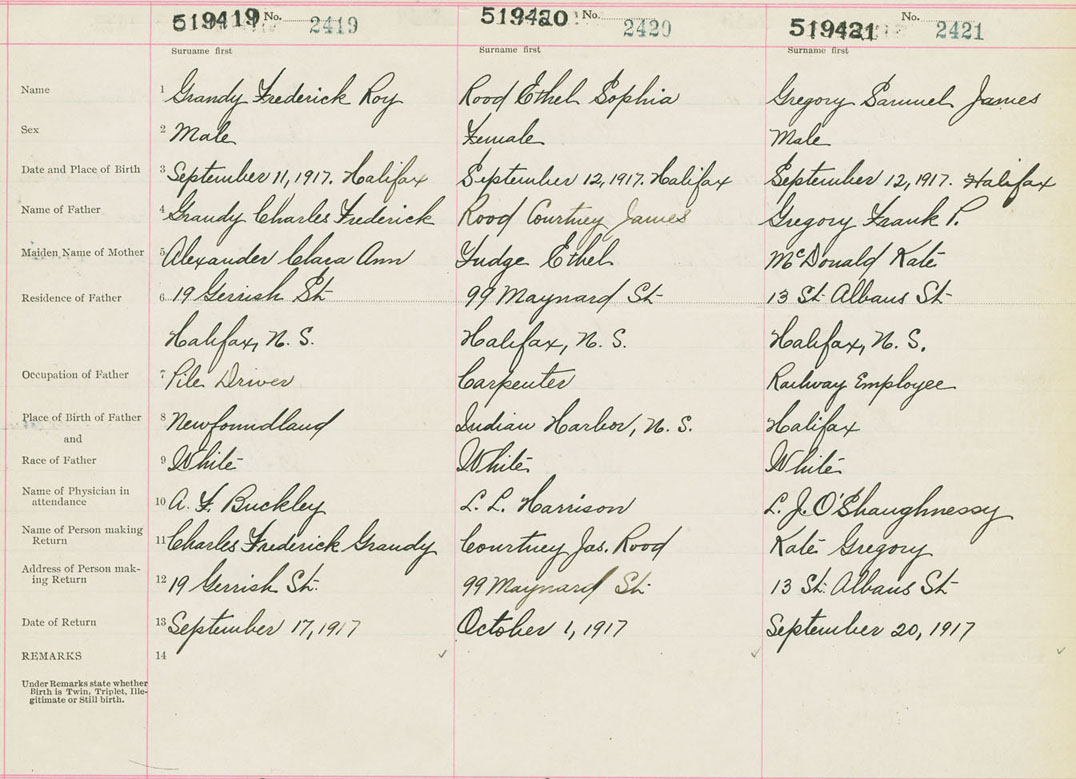 519419 No. 2419 519420 No. 2420 519421 No. 2421
Surname first Surname first Surname first
Name 1 Grandy Frederick Roy Rood Ethel Sophia Gregory Samuel James
Sex 2 Male Female Male
Date and Place of Birth 3 September 11, 1917. Halifax September 12, 1917. Halifax September 12, 1917. Halifax
Name of Father 4 Grandy Charles Frederick Rood Courtney James Gregory Frank P.
Maiden Name of Mother 5 Alexander Clara Ann Fudge Ethel McDonald Kate
Residence of Father 6 19 Gerrish St. 99 Maynard St. 13 St. Albans St.
Halifax, N. S. Halifax, N. S. Halifax, N. S.
Occupation of Father 7 Pile Driver Carpenter Railway Employee
Place of Birth of Father 8 Newfoundland Indian Harbor, N. S. Halifax
and
Race of Father 9 White White White
Name of Physician in
attendance 10 A. F. Buckley L. L. Harrison L. J. O'Shaughnessy
Name of Person making
Return 11 Charles Frederick Grandy Courtney Jas. Rood Kate Gregory
Address of Person mak-
ing Return 12 19 Gerrish St. 99 Maynard St. 13 St. Albans St.
Date of Return 13 September 17, 1917 October 1, 1917 September 20, 1917
REMARKS 14
Under Remarks state whether
Birth is Twin, Triplet, Ille-
gitimate or Still birth.